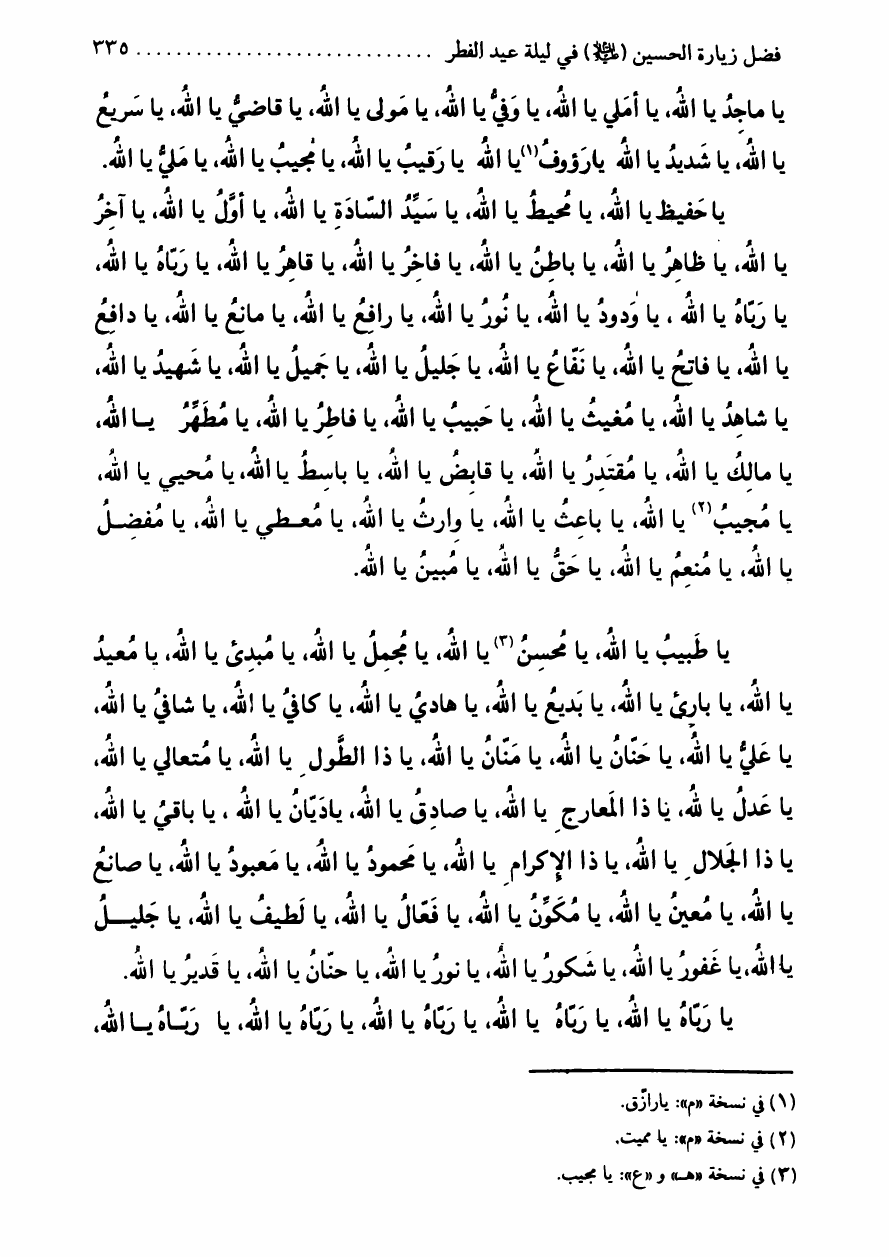 فضل زيارة الحسين (عليه السلام) في ليلة عيد الفطر .............................. ٣٣٥
يا ماجِدُ يا اللهُ، يا أمَلي يا اللهُ، يا وَفيُّ يا اللهُ، يا مَولى يا اللهُ، يا قاضيُّ يا اللهُ، يا سَريعُ
يا اللهُ، يا شَديدُ يا اللهُ يارَؤوفُ(١)يا اللهُ يا رَقيبُ يا اللهُ، يا مُجيبُ يا اللهُ، يا مَليُّ يا اللهُ.
يا حَفيظ يا اللهُ، يا مُحيطُ يا اللهُ، يا سَيِّدُ السّادَةِ يا اللهُ، يا أوَّلُ يا اللهُ، يا آخِرُ
يا اللهُ، يا ظاهِرُ يا اللهُ، يا باطِنُ يا اللهُ، يا فاخِرُ يا اللهُ، يا قاهِرُ يا اللهُ، يا رَبّاهُ يا اللهُ،
يا رَبّاهُ يا اللهُ ، يا وَدودُ يا اللهُ، يا نُورُ يا اللهُ، يا رافِعُ يا اللهُ، يا مانِعُ يا اللهُ، يا دافِعُ
يا اللهُ، يا فاتِحُ يا اللهُ، يا نَفّاعُ يا اللهُ، يا جَليلُ يا اللهُ، يا جَميلُ يا اللهُ، يا شَهيدُ يا اللهُ،
يا شاهِدُ يا اللهُ، يا مُغيثُ يا اللهُ، يا حَبيبُ يا اللهُ، يا فاطِرُ يا اللهُ، يا مُطَهِّرُ يــا اللهُ،
يا مالِكُ يا اللهُ، يا مُقتَدِرُ يا اللهُ، يا قابِضُ يا اللهُ، يا باسِطُ يا اللهُ، يا مُحيي يا اللهُ،
يا مُجيبُ(٢) يا اللهُ، يا باعِثُ يا اللهُ، يا وارِثُ يا اللهُ، يا مُعـطي يا اللهُ، يا مُفضِـلُ
يا اللهُ، يا مُنعِمُ يا اللهُ، يا حَقُّ يا اللهُ، يا مُبينُ يا اللهُ.
يا طَبيبُ يا اللهُ، يا مُحسِنُ(٣) يا اللهُ، يا مُجمِلُ يا اللهُ، يا مُبدِئ يا اللهُ، يا مُعيدُ
يا اللهُ، يا بارِئ يا اللهُ، يا بَديعُ يا اللهُ، يا هاديُ يا اللهُ، يا كافيُ يا اللهُ، يا شافيُ يا اللهُ،
يا عَليُّ يا اللهُ، يا حَنّانُ يا اللهُ، يا مَنّانُ يا اللهُ، يا ذا الطَّولِ يا اللهُ، يا مُتعالي يا اللهُ،
يا عَدلُ يا لله، يا ذا المَعارجِ يا اللهُ، يا صادِقُ يا اللهُ، يادَيّانُ يا اللهُ ، يا باقيُ يا اللهُ،
يا ذا الجَلالِ يا اللهُ، يا ذا الإكرامِ يا اللهُ، يا مَحمودُ يا اللهُ، يا مَعبودُ يا اللهُ، يا صانِعُ
يا اللهُ، يا مُعينُ يا اللهُ، يا مُكَوِّنُ يا اللهُ، يا فَعّالُ يا اللهُ، يا لَطيفُ يا اللهُ، يا جَليــلُ
يا اللهُ، يا غَفورُ يا اللهُ، يا شَكورُ يا اللهُ، يا نورُ يا اللهُ، يا حنّانُ يا اللهُ، يا قَديرُ يا اللهُ.
يا رَبّاهُ يا اللهُ، يا رَبّاهُ يا اللهُ، يا رَبّاهُ يا اللهُ، يا رَبّاهُ يا اللهُ، يا رَبّـاهُ يـا اللهُ،
(١) في نسخة «م»: يارازّق.
(٢) في نسخة «م»: يا مميت.
(٣) في نسخة «هـ» و «ع»: يا مجيب.